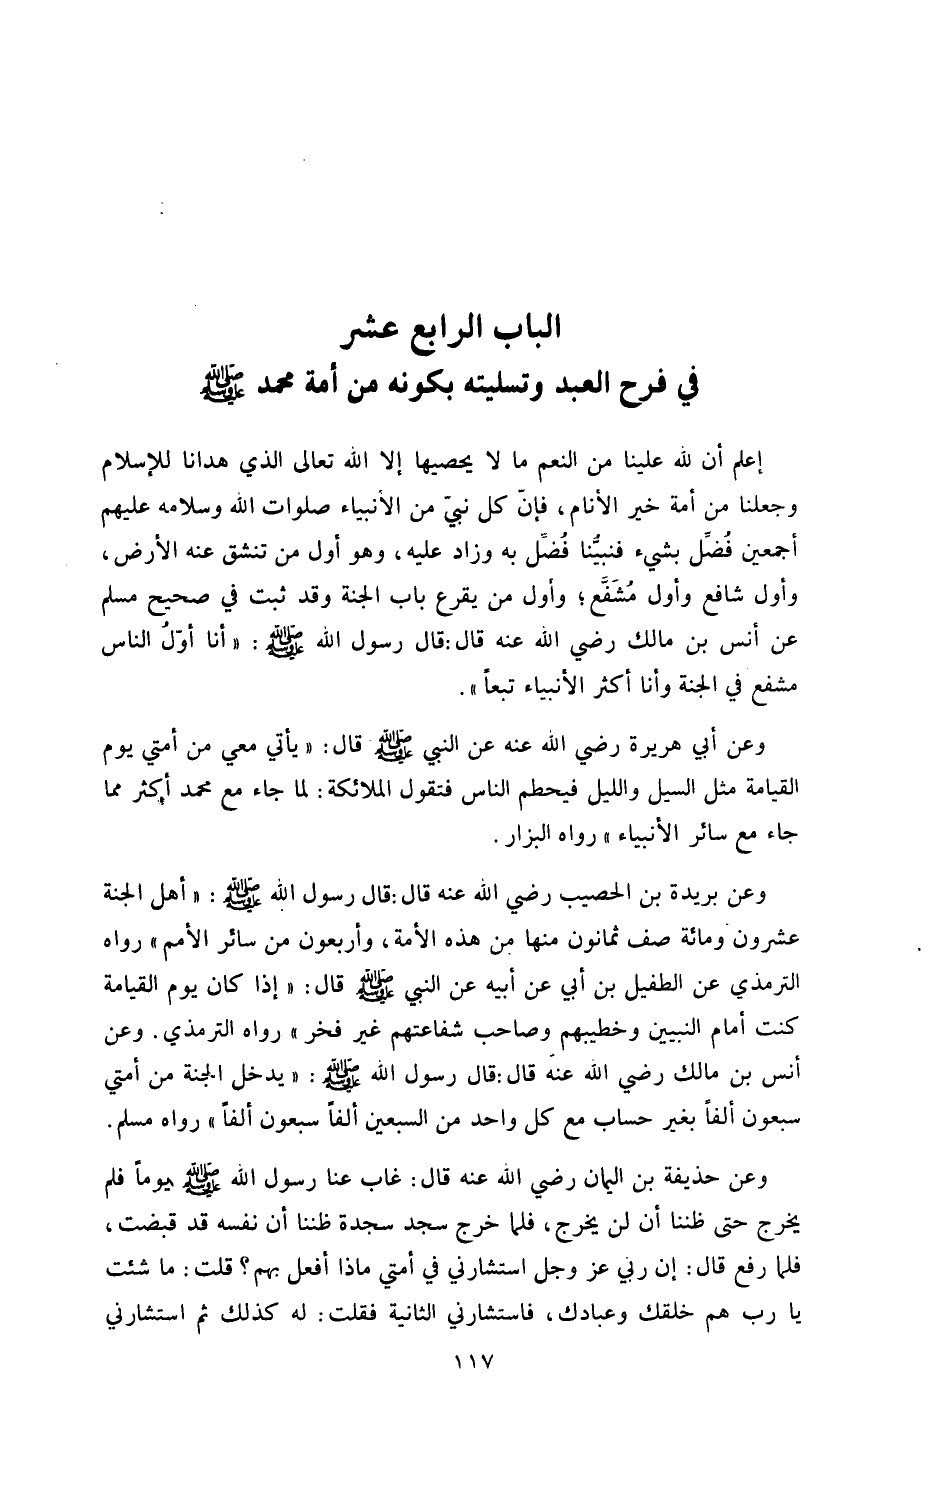 الباب الرابع عشر
في فرح العبد وتسليته بكونه من أمة محمد ﷺ
إعلم أن لله علينا من النعم ما لا يحصيها إلا الله تعالى الذي هدانا للإسلام
وجعلنا من أمة خير الأنام، فإنّ كل نبيّ من الأنبياء صلوات الله وسلامه عليهم
أجمعين فُضِّل بشيء فنبيُّنا فُضِّل به وزاد عليه، وهو أول من تنشق عنه الأرض،
وأول شافع وأول مُشَفَّع؛ وأول من يقرع باب الجنة وقد ثبت في صحيح مسلم
عن أنس بن مالك رضي الله عنه قال:قال رسول الله ﷺ : « أنا أوّلُ الناس
مشفع في الجنة وأنا أكثر الأنبياء تبعاً ».
وعن أبي هريرة رضي الله عنه عن النبي ﷺ قال: « يأتي معي من أمتي يوم
القيامة مثل السيل والليل فيحطم الناس فتقول الملائكة: لما جاء مع محمد أكثر مما
جاء مع سائر الأنبياء » رواه البزار.
وعن بريدة بن الحصيب رضي الله عنه قال:قال رسول الله ﷺ : « أهل الجنة
عشرون ومائة صف ثمانون منها من هذه الأمة، وأربعون من سائر الأمم » رواه
الترمذي عن الطفيل بن أبي عن أبيه عن النبي ﷺ قال: « إذا كان يوم القيامة
كنت أمام النبيين وخطيبهم وصاحب شفاعتهم غير فخر » رواه الترمذي. وعن
أنس بن مالك رضي الله عنه قال:قال رسول الله ﷺ : « يدخل الجنة من أمتي
سبعون ألفاً بغير حساب مع كل واحد من السبعين ألفاً سبعون ألفاً » رواه مسلم.
وعن حذيفة بن اليمان رضي الله عنه قال: غاب عنا رسول الله ﷺ يوماً فلم
يخرج حتى ظننا أن لن يخرج، فلما خرج سجد سجدة ظننا أن نفسه قد قبضت،
فلما رفع قال: إن ربي عز وجل استشارني في أمتي ماذا أفعل بهم؟ قلت: ما شئت
يا رب هم خلقك وعبادك، فاستشارني الثانية فقلت: له كذلك ثم استشارني
١١٧